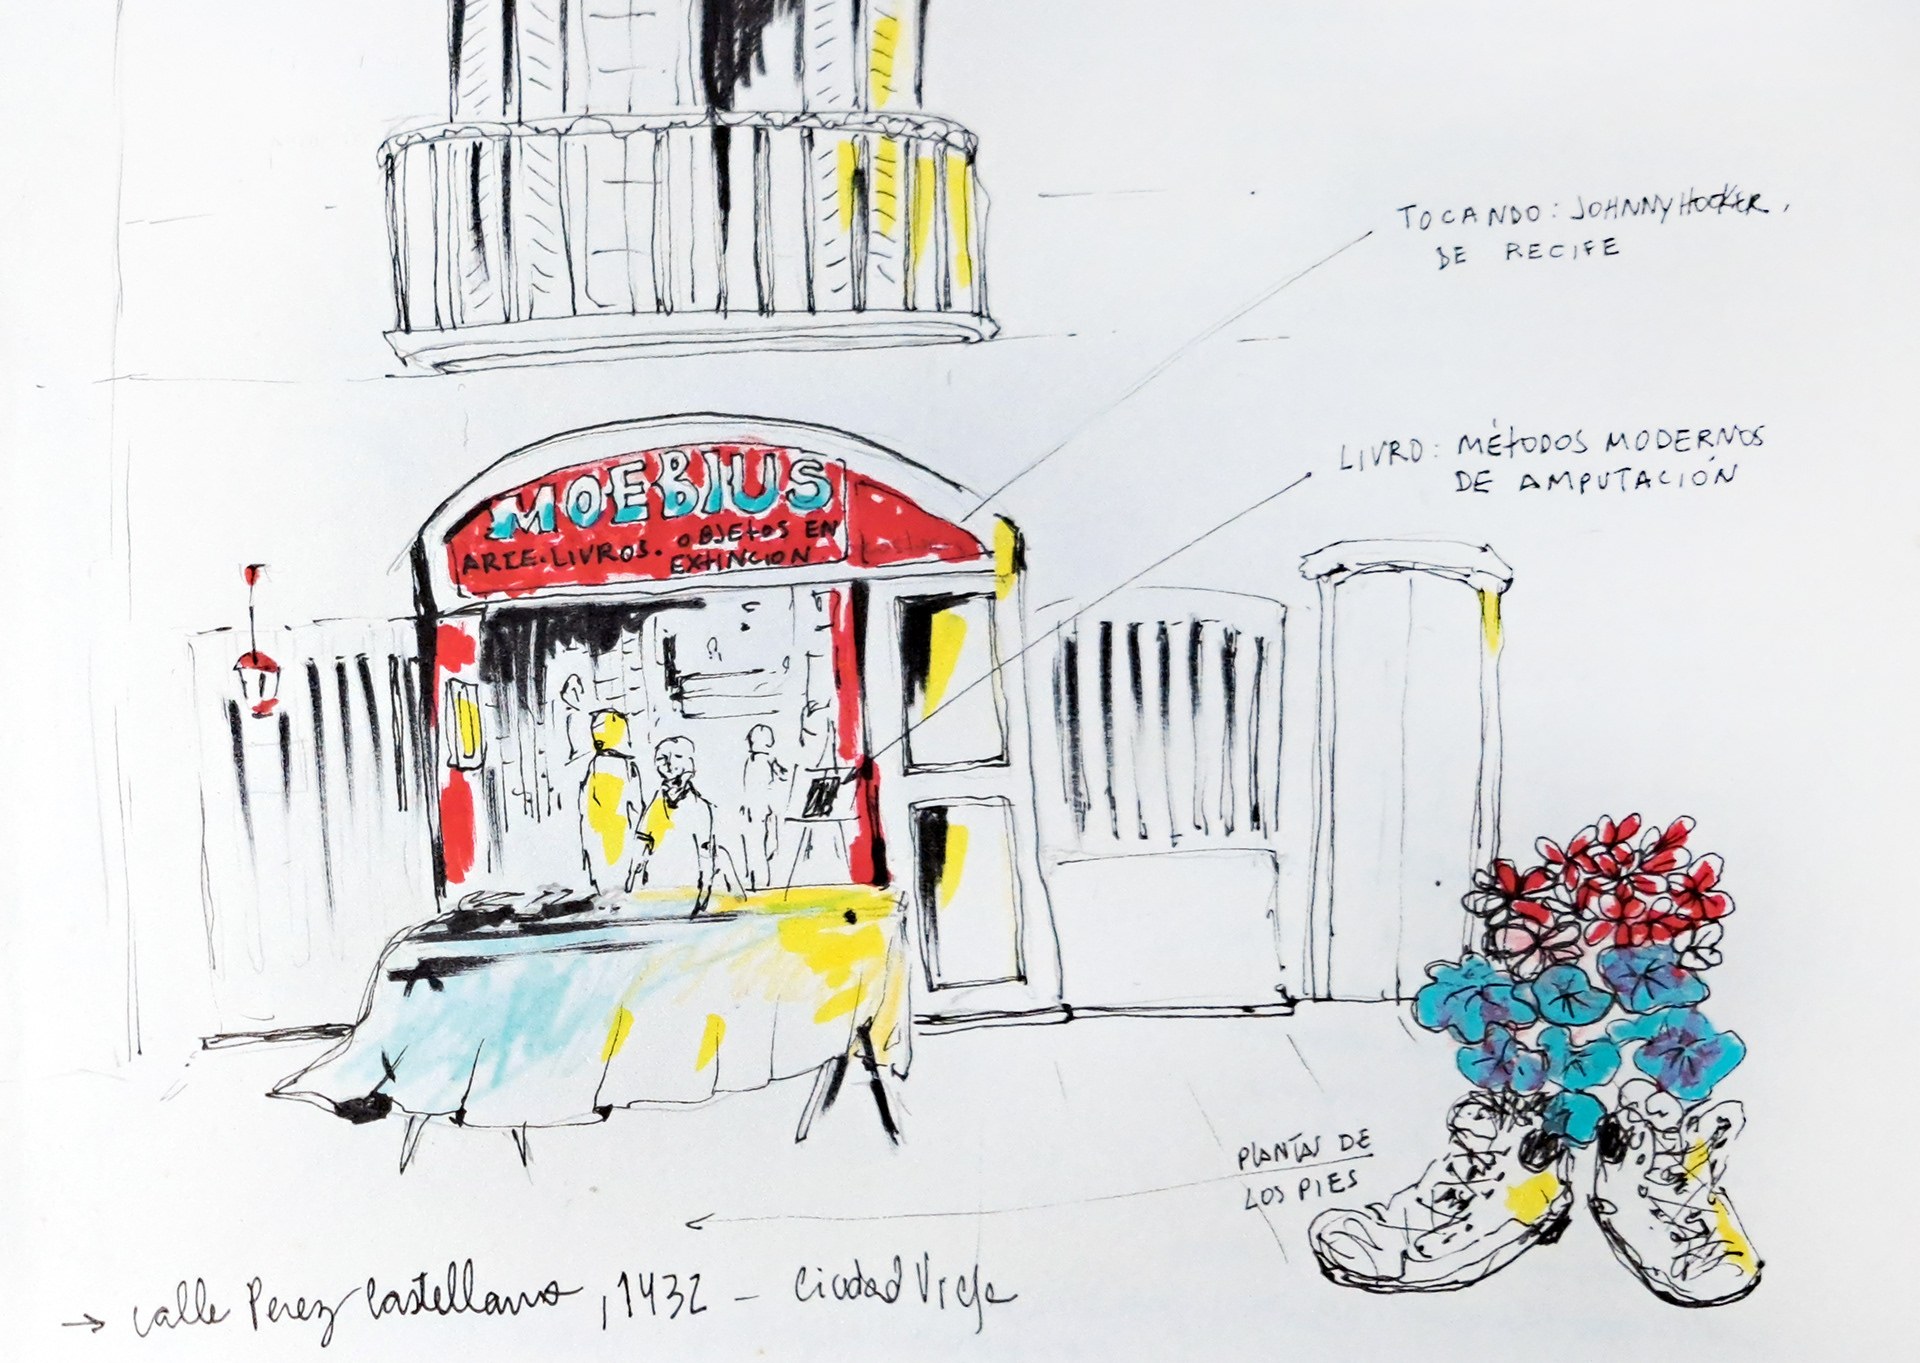 TOCANDO: JOHNNY HOOKER,
DE RECIFE
LIVRO: MÉTODOS MODERNOS
DE AMPUTACIÓN
MOEBIUS
ARTE. LIVROS. OBJETOS EN
EXTINCION
PLANTAS DE
LOS PIES
→ calle Perez Castellano, 1432 – Ciudad Vieja